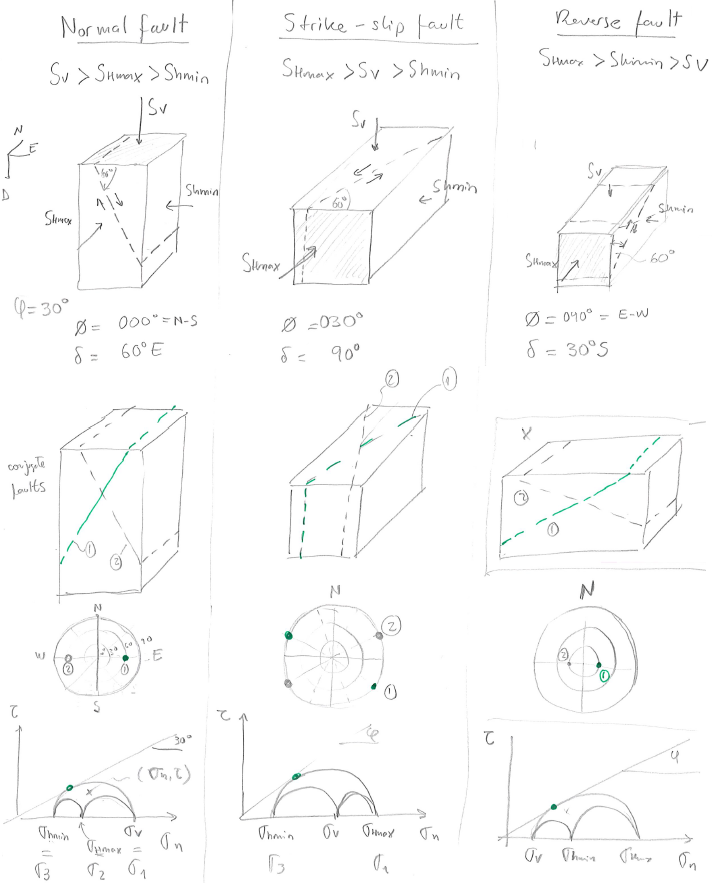 Normal fault
Sv > SHmax > Shmin
Sv
N
E
D
60°
Shmin
SHmax
φ=30°
Ø = 000° = N-S
δ = 60°E
conjugate
faults
1
2
N
W
E
S
30
60
90
2
1
τ
30°
(σn, τ)
x
σhmin
σHmax
σv
σn
= = =
σ3 σ2 σ1
Strike-slip fault
SHmax > Sv > Shmin
Sv
60°
Shmin
SHmax
Ø = 030°
δ = 90°
2
1
N
2
1
τ
φ
σhmin
σv
σHmax
σn
σ3
σ1
Reverse fault
SHmax > Shmin > SV
Sv
Shmin
SHmax
60°
Ø = 090° = E-W
δ = 30°S
x
2
1
N
2
1
τ
φ
σv
σhmin
σHmax
σn